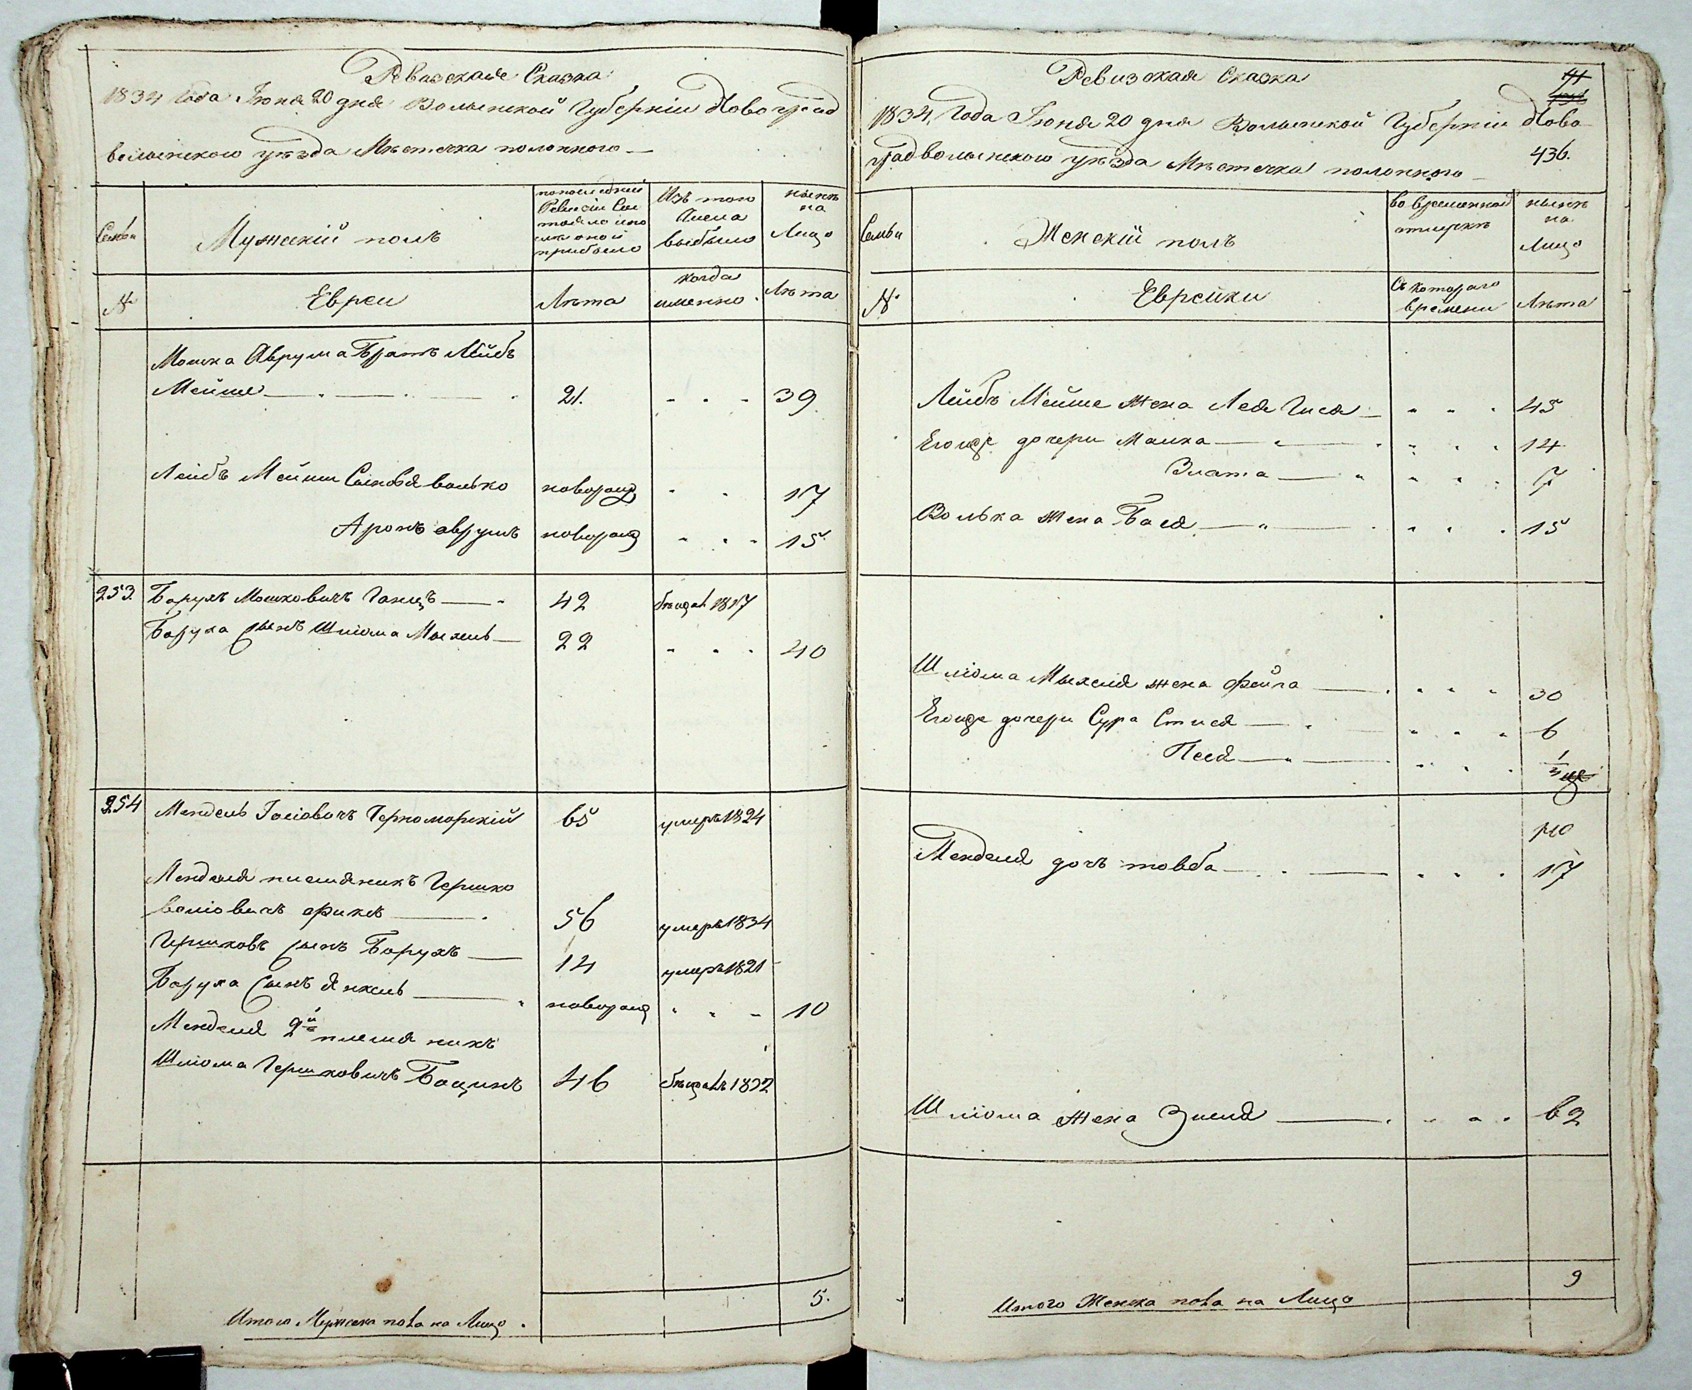 Ревизская Сказка
1834 Года Іюня 20 дня Волынской Губерніи Новоград
волынского уѣзда Мѣстечка полонного
Семьи
Мужескій полъ
по последней
Ревизіи Сос
тояло и по
слѣ оной
прибыло
Изъ того
Числа
выбыло
нынѣ
на
Лицо
№
Евреи
Лѣта
когда
именно
Лѣта
Мошка Аврума Братъ Лейбъ
Мейше 21. 39
Лейбъ Мейши Сыновя волько новорожд 17
Аронъ аврумъ новорожд 15
253 Борухъ Мошковичъ Ганцъ 42 бѣжалъ 1817
Боруха Сынъ Шліома Мыхель 22 40
254 Мендель Іосіовичъ Черноморскій 65 умеръ 1824
Менделя племяникъ Гершко
Іосіовичъ 56 умеръ 1834
Гершковъ Сынъ Борухъ 14 умеръ 1821
Боруха Сынъ Янкель новорожд 10
Менделя 2й племяникъ
Шліома Гершковичъ 46 бѣжалъ 1832
5.
Итого Мужеска пола на Лицо
Ревизская Сказка
41
436.
1834 Года Іюня 20 дня Волынской Губерніи Ново
градволынского уѣзда Мѣстечка полонного
Семьи
Женскій полъ
во временной
отлучкѣ
нынѣ
на
Лицо
№
Еврейки
Съ котораго
времени
Лѣта
Лейбъ Мейше жена Лея Гися 45
Егоже дочери Малка 14
Злата 7
Волька жена Бася 15
Шліома Мыхеля жена Фейга 30
Егоже дочери Сура Стися 6
Песя 1/2
Менделя дочъ товба 17
Шліома жена Зисля 62
9
Итого Женска пола на Лицо